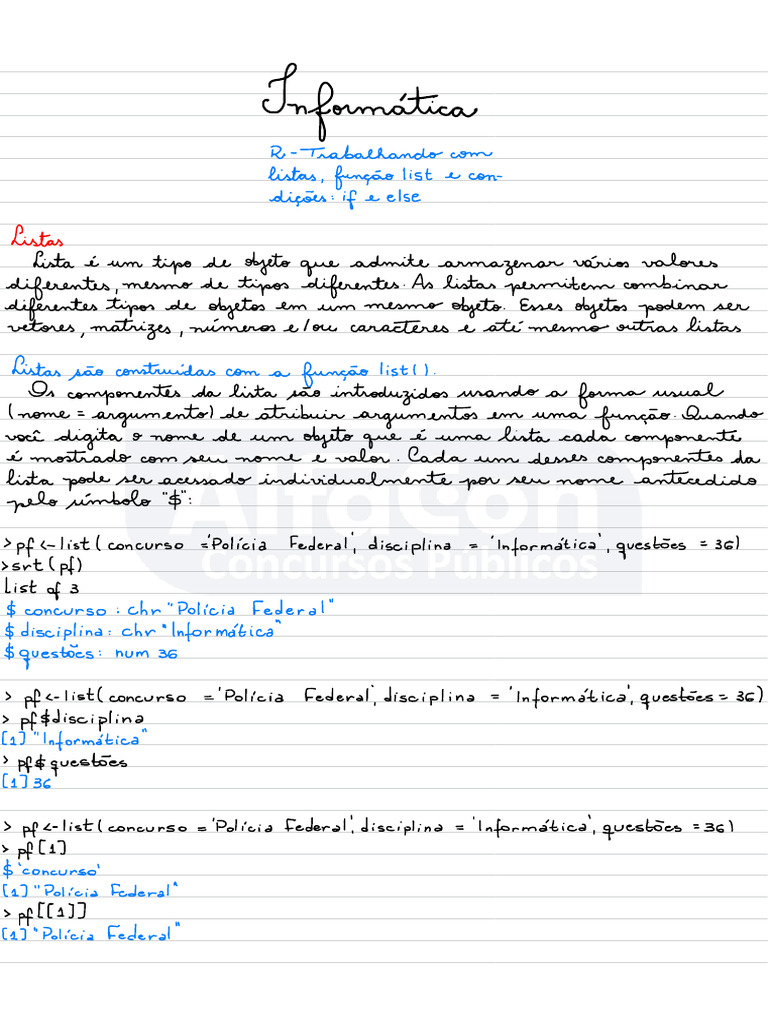 Informática
R - Trabalhando com
listas, função list e con-
dições: if e else
Listas
Lista é um tipo de objeto que admite armazenar vários valores
diferentes, mesmo de tipos diferentes. As listas permitem combinar
diferentes tipos de objetos em um mesmo objeto. Esses objetos podem ser
vetores, matrizes, números e/ou caracteres e até mesmo outras listas
Listas são construídas com a função list().
Os componentes da lista são introduzidos usando a forma usual
(nome = argumento) de atribuir argumentos em uma função. Quando
você digita o nome de um objeto que é uma lista cada componente
é mostrado com seu nome e valor. Cada um desses componentes da
lista pode ser acessado individualmente por seu nome antecedido
pelo símbolo "$":
AlfaCon
Concursos Públicos
> pf <- list ( concurso = 'Polícia Federal', disciplina = 'Informática', questões = 36)
> srt (pf)
List of 3
$ concurso : chr "Polícia Federal"
$ disciplina : chr "Informática"
$ questões: num 36
> pf <- list ( concurso = 'Polícia Federal', disciplina = 'Informática', questões = 36)
> pf$disciplina
[1] "Informática"
> pf$questões
[1] 36
> pf <- list ( concurso = 'Polícia Federal', disciplina = 'Informática', questões = 36)
> pf [1]
$ 'concurso'
[1] "Polícia Federal"
> pf [[1]]
[1] "Polícia Federal"